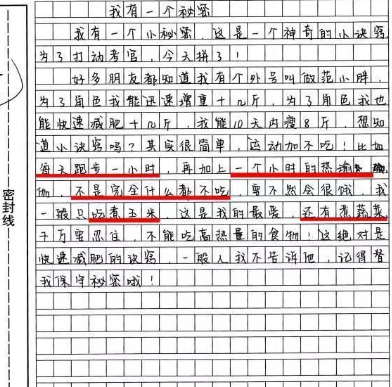 我有一个秘密
我有一个小秘密，这是一个神奇的小诀窍，
为了打动考官，今天拼了！
好多朋友都知道我有个外号叫做范小胖，
为了角色我能迅速增重十几斤，为了角色我也
能快速减肥十几斤，我能10天内瘦8斤，想知
道小诀窍吗？其实很简单，运动加不吃！比如
每天跑步一小时，再加上一个小时的热瑜
伽，不是完全什么都不吃，要不然会很饿，我
一般只吃煮玉米，这是我的最爱，还有煮蔬菜
千万要忍住，不能吃高热量的食物！这绝对是
快速减肥的诀窍，一般人我不告诉他，记得替
我保守秘密哦！
密封线